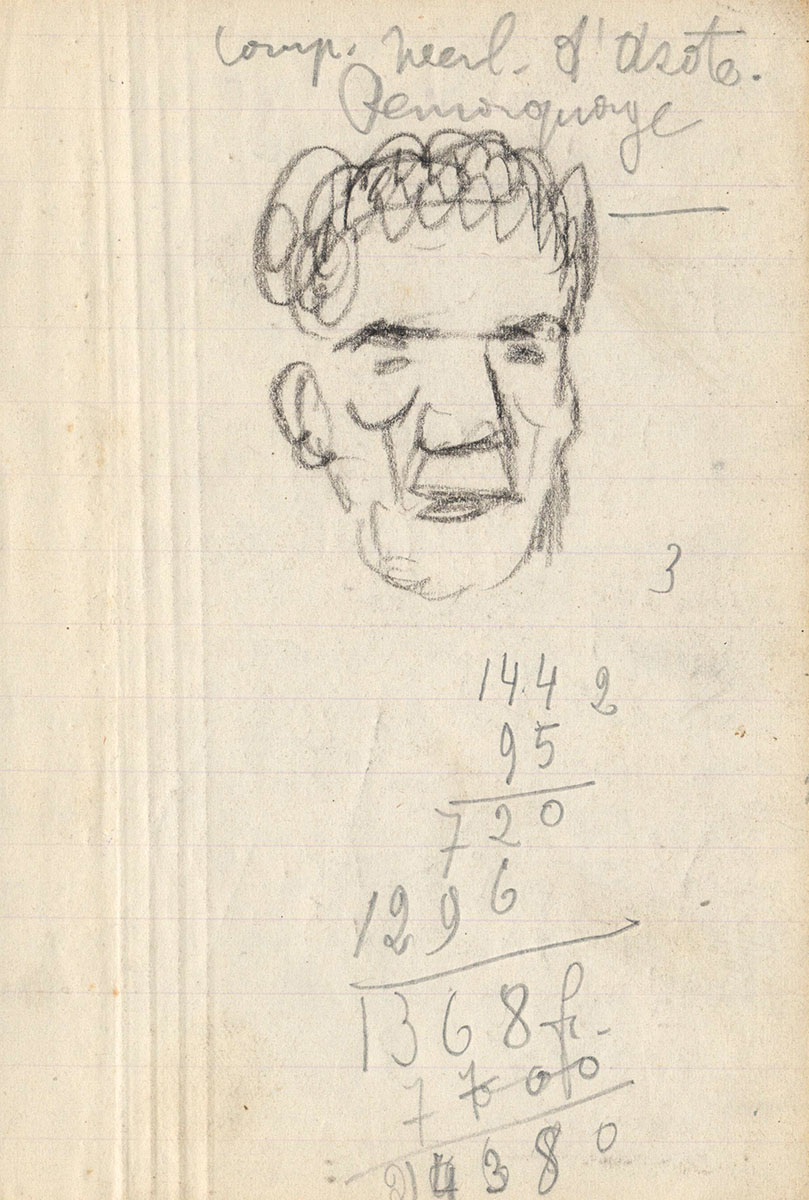 comp. neerl. d'Azote.
Remorquage
3
144 2
95
720
1296
1368 fr.
7700
4380